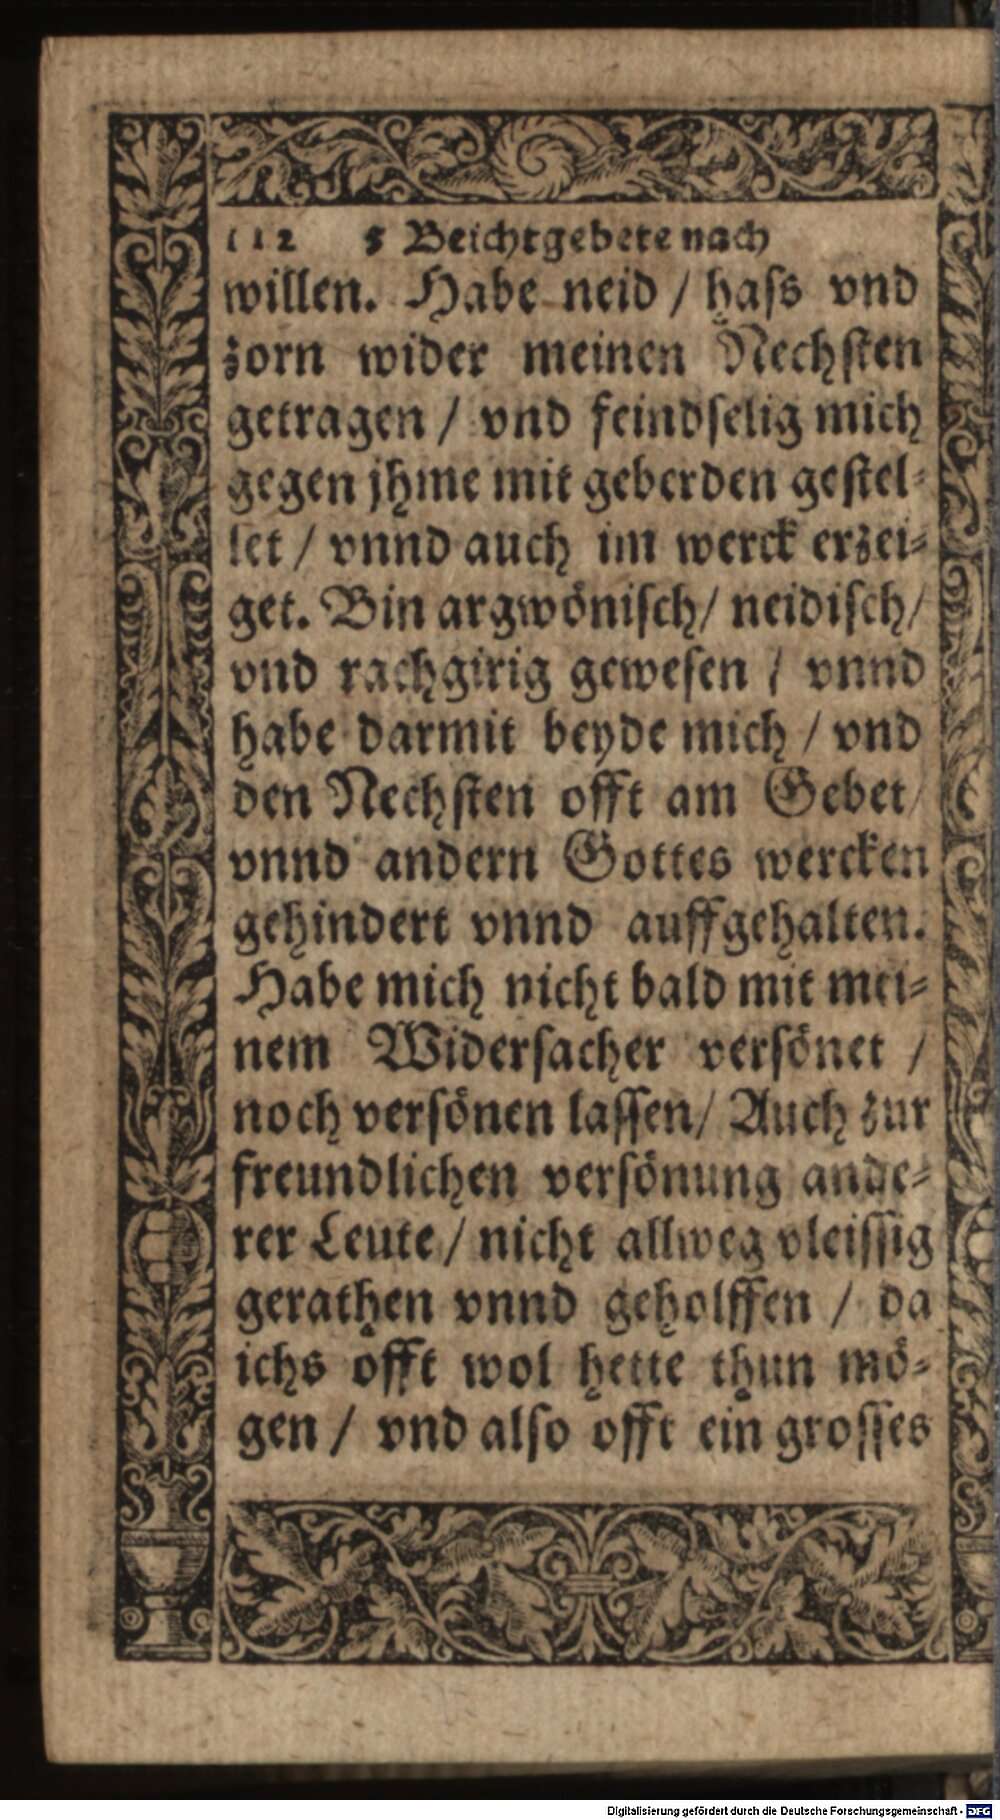 112 5 Beichtgebete nach
willen. Habe neid / haſs vnd
zorn wider meinen Nechſten
getragen / vnd feindſelig mich
gegen jhme mit geberden geſtel⸗
let / vnnd auch im werck erzei⸗
get. Bin argwöniſch / neidiſch /
vnd rachgirig geweſen / vnnd
habe darmit beyde mich / vnd
den Nechſten offt am Gebet /
vnnd andern Gottes wercken
gehindert vnnd auffgehalten.
Habe mich nicht bald mit mei⸗
nem Widerſacher verſönet /
noch verſönen laſſen / Auch zur
freundlichen verſönung ande⸗
rer Leute / nicht allweg vleiſſig
gerathen vnnd geholffen / da
ichs offt wol hette thun mö⸗
gen / vnd alſo offt ein groſſes
Digitalisierung gefördert durch die Deutsche Forschungsgemeinschaft - DFG